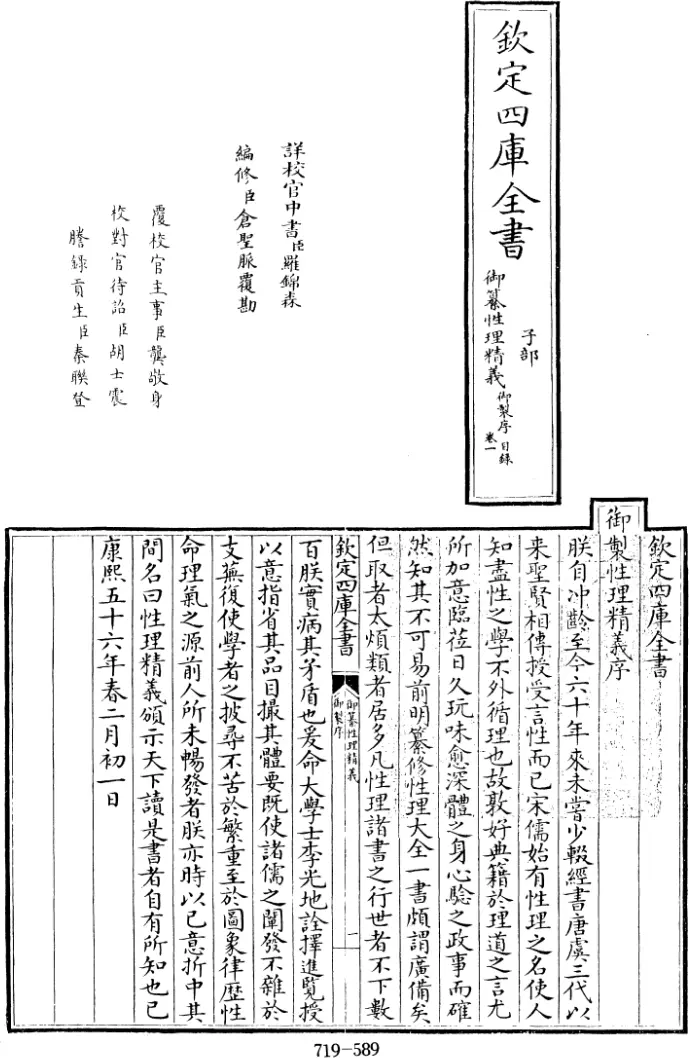 欽定四庫全書
子部
御纂性理精義御製序目錄卷一
詳校官中書臣羅錦森
編修臣倉聖脈覆勘
覆校官主事臣龔敬身
校對官待詔臣胡士震
謄錄貢生臣秦聯登
欽定四庫全書
御製性理精義序
朕自沖齡至今六十年來未嘗少輟經書唐虞三代以
來聖賢相傳授受言性而已宋儒始有性理之名使人
知盡性之學不外循理也故敦好典籍於理道之言尤
所加意臨莅日久玩味愈深體之身心驗之政事而確
然知其不可易前明纂修性理大全一書頗謂廣備矣
但取者太煩類者居多凡性理諸書之行世者不下數
欽定四庫全書
御纂性理精義
御製序
一
百朕實病其矛盾也爰命大學士李光地詮擇進覽授
以意指省其品目撮其體要既使諸儒之闡發不雜於
支蕪復使學者之披尋不苦於繁重至於圖象律歷性
命理氣之源前人所未暢發者朕亦時以己意折中其
間名曰性理精義頒示天下讀是書者自有所知也已
康熙五十六年春二月初一日
719-589